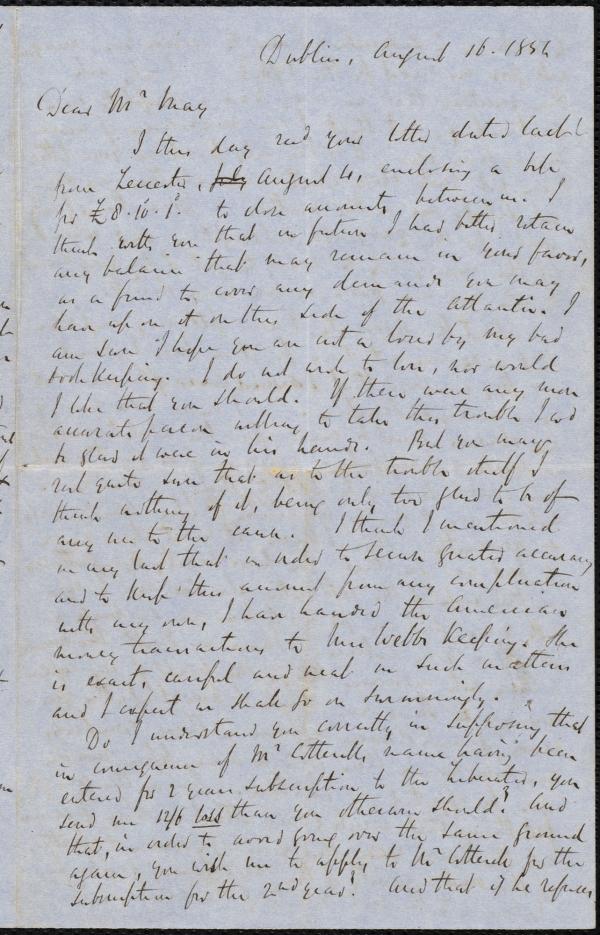 Dublin, August 16. 1854
Dear Mr May
I this day recd your letter dated
from Leicester, July August 4, enclosing a bill
for £8.10.1. to close accounts between us. I
think with you that in future I had better retain
any balance that may remain in your favor,
as a fund to cover any demands you may
have upon it on this side of the Atlantic. I
am sure I hope you are not a loser by my bad
bookkeeping. I do not wish to lose, nor would
I like that you should. If there were any more
accurate person willing to take this trouble I wd
be glad it were in his hands. But you may
rest quite sure that as to the trouble itself I
think nothing of it, being only too glad to be of
any use to the cause. I think I mentioned
in my last that in order to secure greater accuracy
and to keep this account from any complication
with my own, I have handed the American
money transactions to Mrs Webb's keeping. She
is exact, careful and neat in such matters
and I expect we shall go on swimmingly.
Do I understand you correctly in supposing that
in consequence of Mr Cotterell's name having been
entered for 2 years subscription to the Liberator, you
send me 12/6 less than you otherwise should? And
that, in order to avoid going over the same ground
again, you wish me to apply to Mr Cotterell for the
subscription for the 2nd year? And that if he refuses